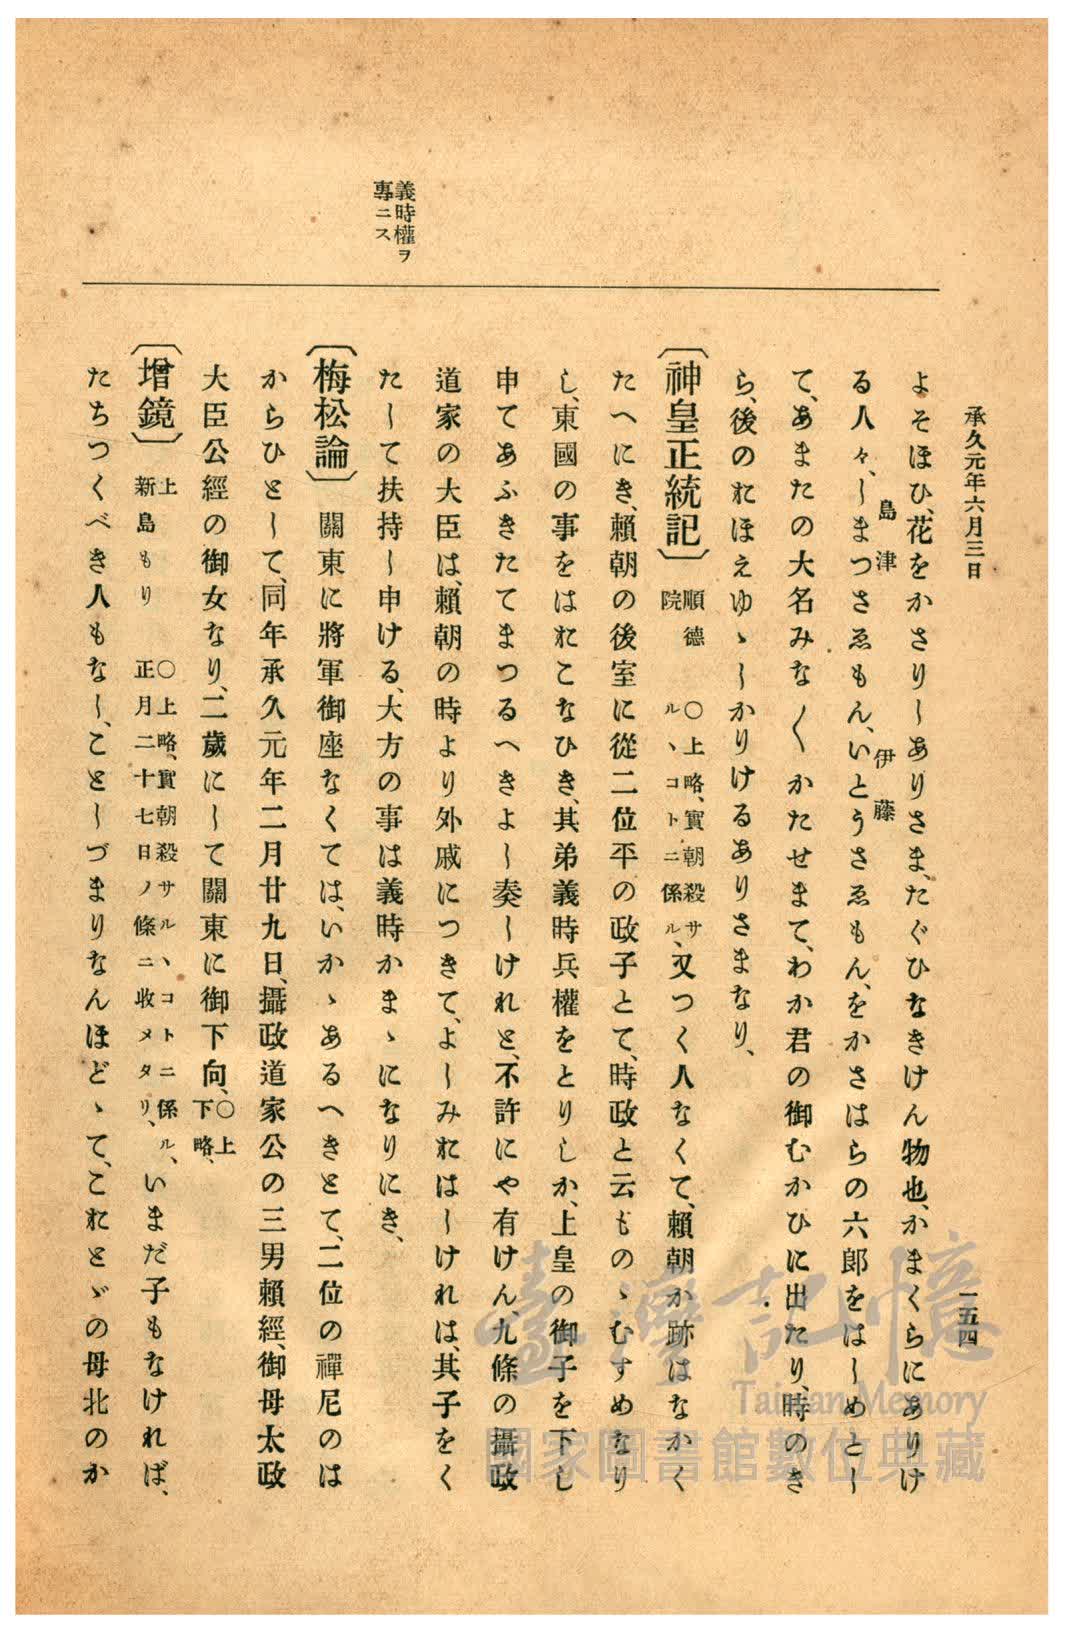 承久元年六月三日
一五四
よそほひ、花をかさりしありさま、たぐひなきけん物也、かまくらにありけ
る人々、しまつさゑもん、いとうさゑもん、をかさはらの六郎をはしめとし
島津
伊藤
て、あまたの大名みな〳〵かたせまて、わか君の御むかひに出たり、時のき
ら、後のおほえゆゝしかりけるありさまなり、
〔神皇正統記〕順德院 〇上略、實朝殺サルヽコトニ係ル、又つく人なくて、賴朝か跡はなかく
たへにき、賴朝の後室に從二位平の政子とて、時政と云ものゝむすめなり
し、東國の事をはおこなひき、其弟義時兵權をとりしか、上皇の御子を下し
申てあふきたてまつるへきよし奏しけれと、不許にや有けん、九條の攝政
道家の大臣は、賴朝の時より外戚につきて、よしみおはしけれは、其子をく
たして扶持し申ける、大方の事は義時かまゝになりにき、
義時權ヲ
專ニス
〔梅松論〕關東に將軍御座なくては、いかゝあるへきとて、二位の禪尼のは
からひとして、同年承久元年二月廿九日、攝政道家公の三男賴經、御母太政
大臣公經の御女なり、二歲にして關東に御下向、〇上下略、
〔增鏡〕上新島もり 〇上略、實朝殺サルヽコトニ係ル、正月二十七日ノ條ニ收メタリ、いまだ子もなければ、
たちつくべき人もなし、ことしづまりなんほどゝて、これとゞの母北のか
臺灣記憶
Taiwan Memory
國家圖書館數位典藏